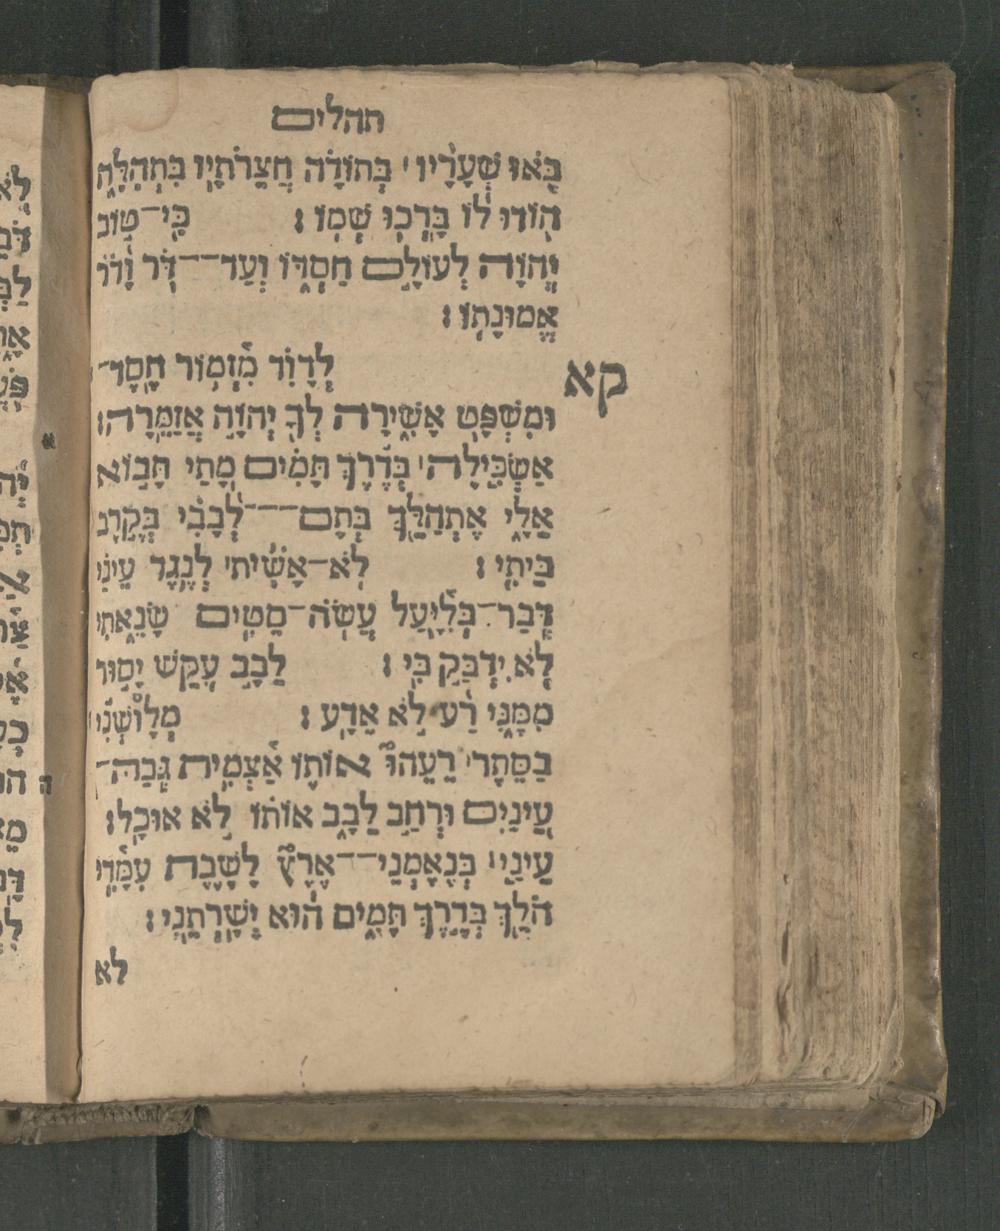 תהלים
בֹּאוּ שְׁעָרָיו בְּתוֹדָה חֲצֵרֹתָיו בִּתְהִלָּה
הוֹדוּ לוֹ בָּרְכוּ שְׁמוֹ : כִּי־טוֹב
יְהוָה לְעוֹלָם חַסְדּוֹ וְעַד־־דֹּר וָדֹר
אֱמוּנָתוֹ :
קא לְדָוִד מִזְמוֹר חֶסֶד־
וּמִשְׁפָּט אָשִׁירָה לְךָ יְהוָה אֲזַמֵּרָה :
אַשְׂכִּילָה בְּדֶרֶךְ תָּמִים מָתַי תָּבוֹא
אֵלָי אֶתְהַלֵּךְ בְּתָם־־־לְבָבִי בְּקֶרֶב
בֵּיתִי : לֹא־אָשִׁית לְנֶגֶד עֵינַי
דְּבַר־בְּלִיָּעַל עֲשֹׂה־סֵטִים שָׂנֵאתִי
לֹא יִדְבַּק בִּי : לֵבָב עִקֵּשׁ יָסוּר
מִמֶּנִּי רָע לֹא אֵדָע : מְלוֹשְׁנִי
בַסֵּתֶר רֵעֵהוּ אוֹתוֹ אַצְמִית גְּבַהּ־
עֵינַיִם וּרְחַב לֵבָב אוֹתוֹ לֹא אוּכָל :
עֵינַי בְּנֶאֶמְנֵי־־אֶרֶץ לָשֶׁבֶת עִמָּדִי
הֹלֵךְ בְּדֶרֶךְ תָּמִים הוּא יְשָׁרְתֵנִי :
לא